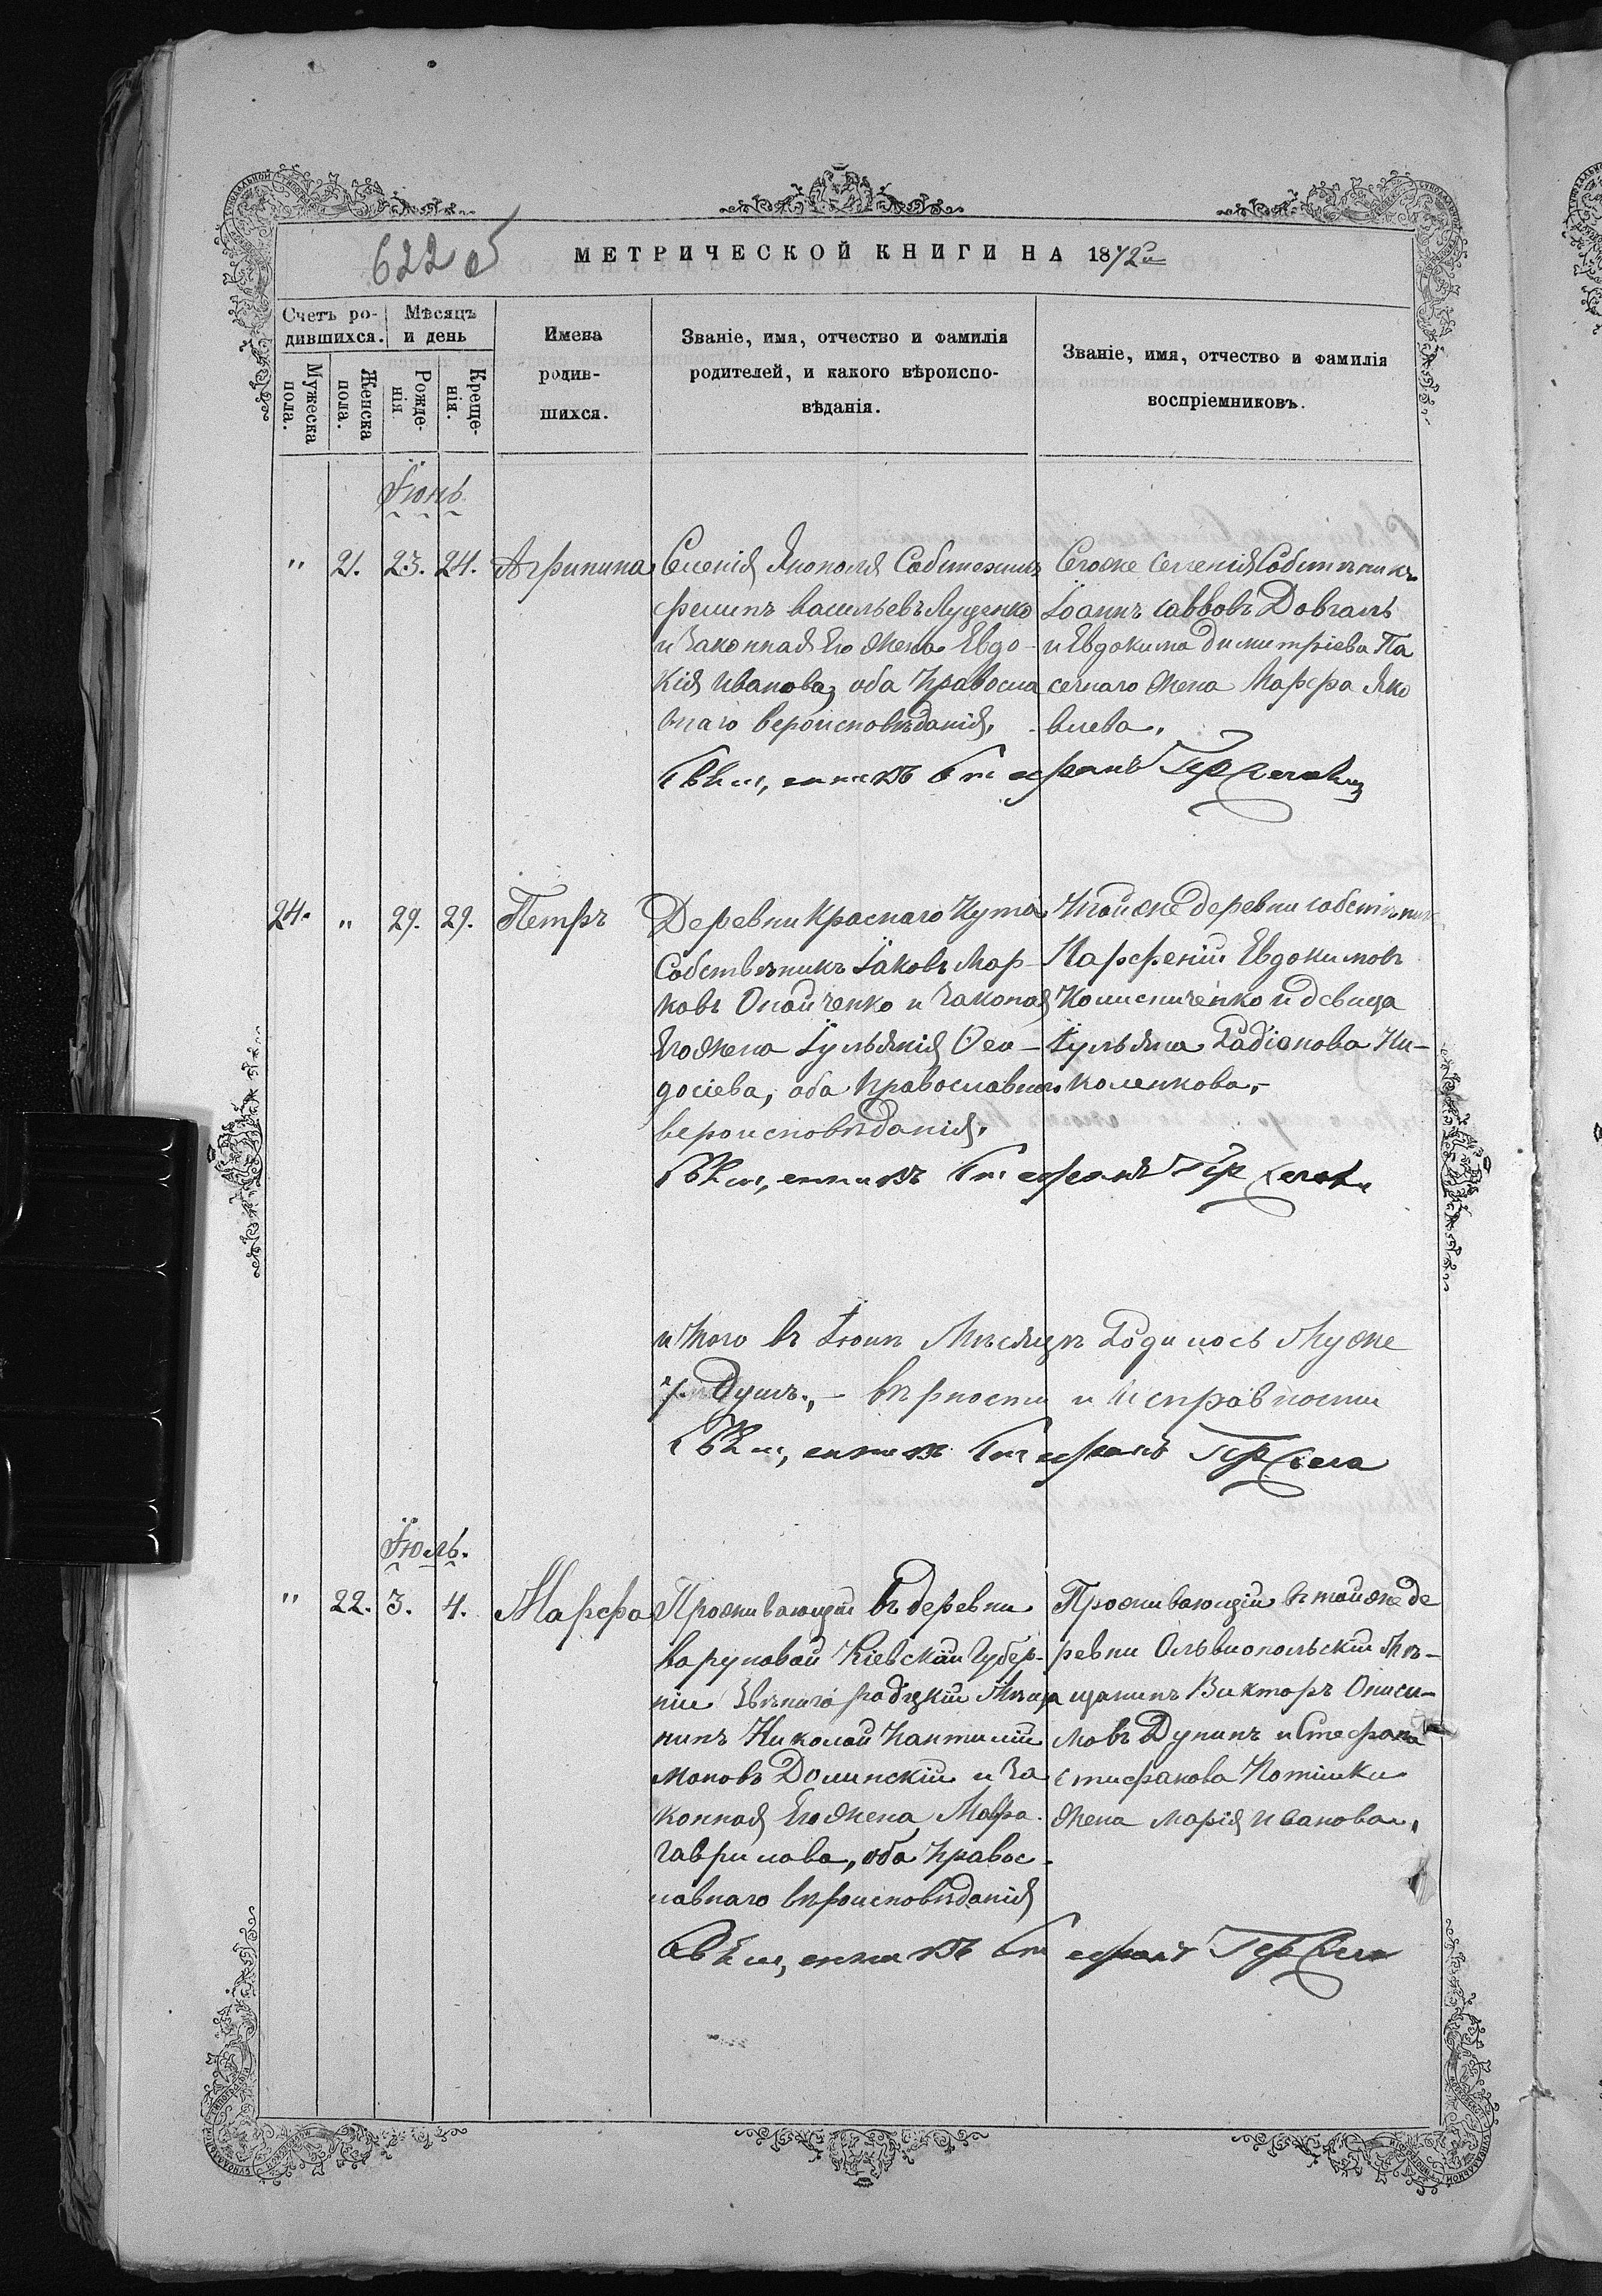 622 об
МЕТРИЧЕСКОЙ КНИГИ НА 1872й
Счетъ ро-
дившихся.
Мѣсяцъ
и день
Мужеска
пола.
Женска
пола.
Рожде-
нія.
Креще-
нія.
Имена
родив-
шихся.
Званіе, имя, отчество и фамилія
родителей, и какого вѣроиспо-
вѣданія.
Званіе, имя, отчество и фамилія
воспріемниковъ.
Іюнь
" 21. 23. 24. Агрипина
Селенія Собственникъ
Васильевъ Луценко
и Законная Его Жена Евдо-
кія Иванова, оба Правосла
внаго вероисповѣданія,
Сегоже Селенія Собственникъ
Іоаннъ Саввовъ Довгаль
и Евдокима Димитріева Па
сечнаго Жена Марфа Яко
влева.
Священникъ Стефанъ
24. " 29. 29. Петръ
Деревни Краснаго Кута
Собственникъ Іаковъ Мар-
ковъ и Законая
Его Жена Іульянія Фео-
досіева, оба Православнаго
вероисповѣданія,
Тойже деревни собственник
Парфеній Евдокимовъ
Колисниченко и девица
Іульяна Радіонова Ни-
коленкова,-
Священникъ Стефанъ
итого въ Іюнѣ Мѣсяцѣ Родилось Муже
7. Душъ.,- вѣрности и Исправности
Священникъ Стефанъ
Іюль.
" 22. 3. 4. Марфа
Проживающій въ деревни
Варуновой Кіевской Губер-
ніи Звѣниго родзкій Мѣща
нинъ Николай Пантилій
моновъ Долинскій и За
конная Его Жена Марфа
Гаврилова, оба Правос-
лавнаго вѣроисповѣданія
Проживающій въ тойже де
ревни Ольвиопольскій Мѣ-
щанинъ Викторъ Ониси-
мовъ Дунинъ и Стефана
Стифанова
Жена Марія Иванова,
Священникъ Стефанъ